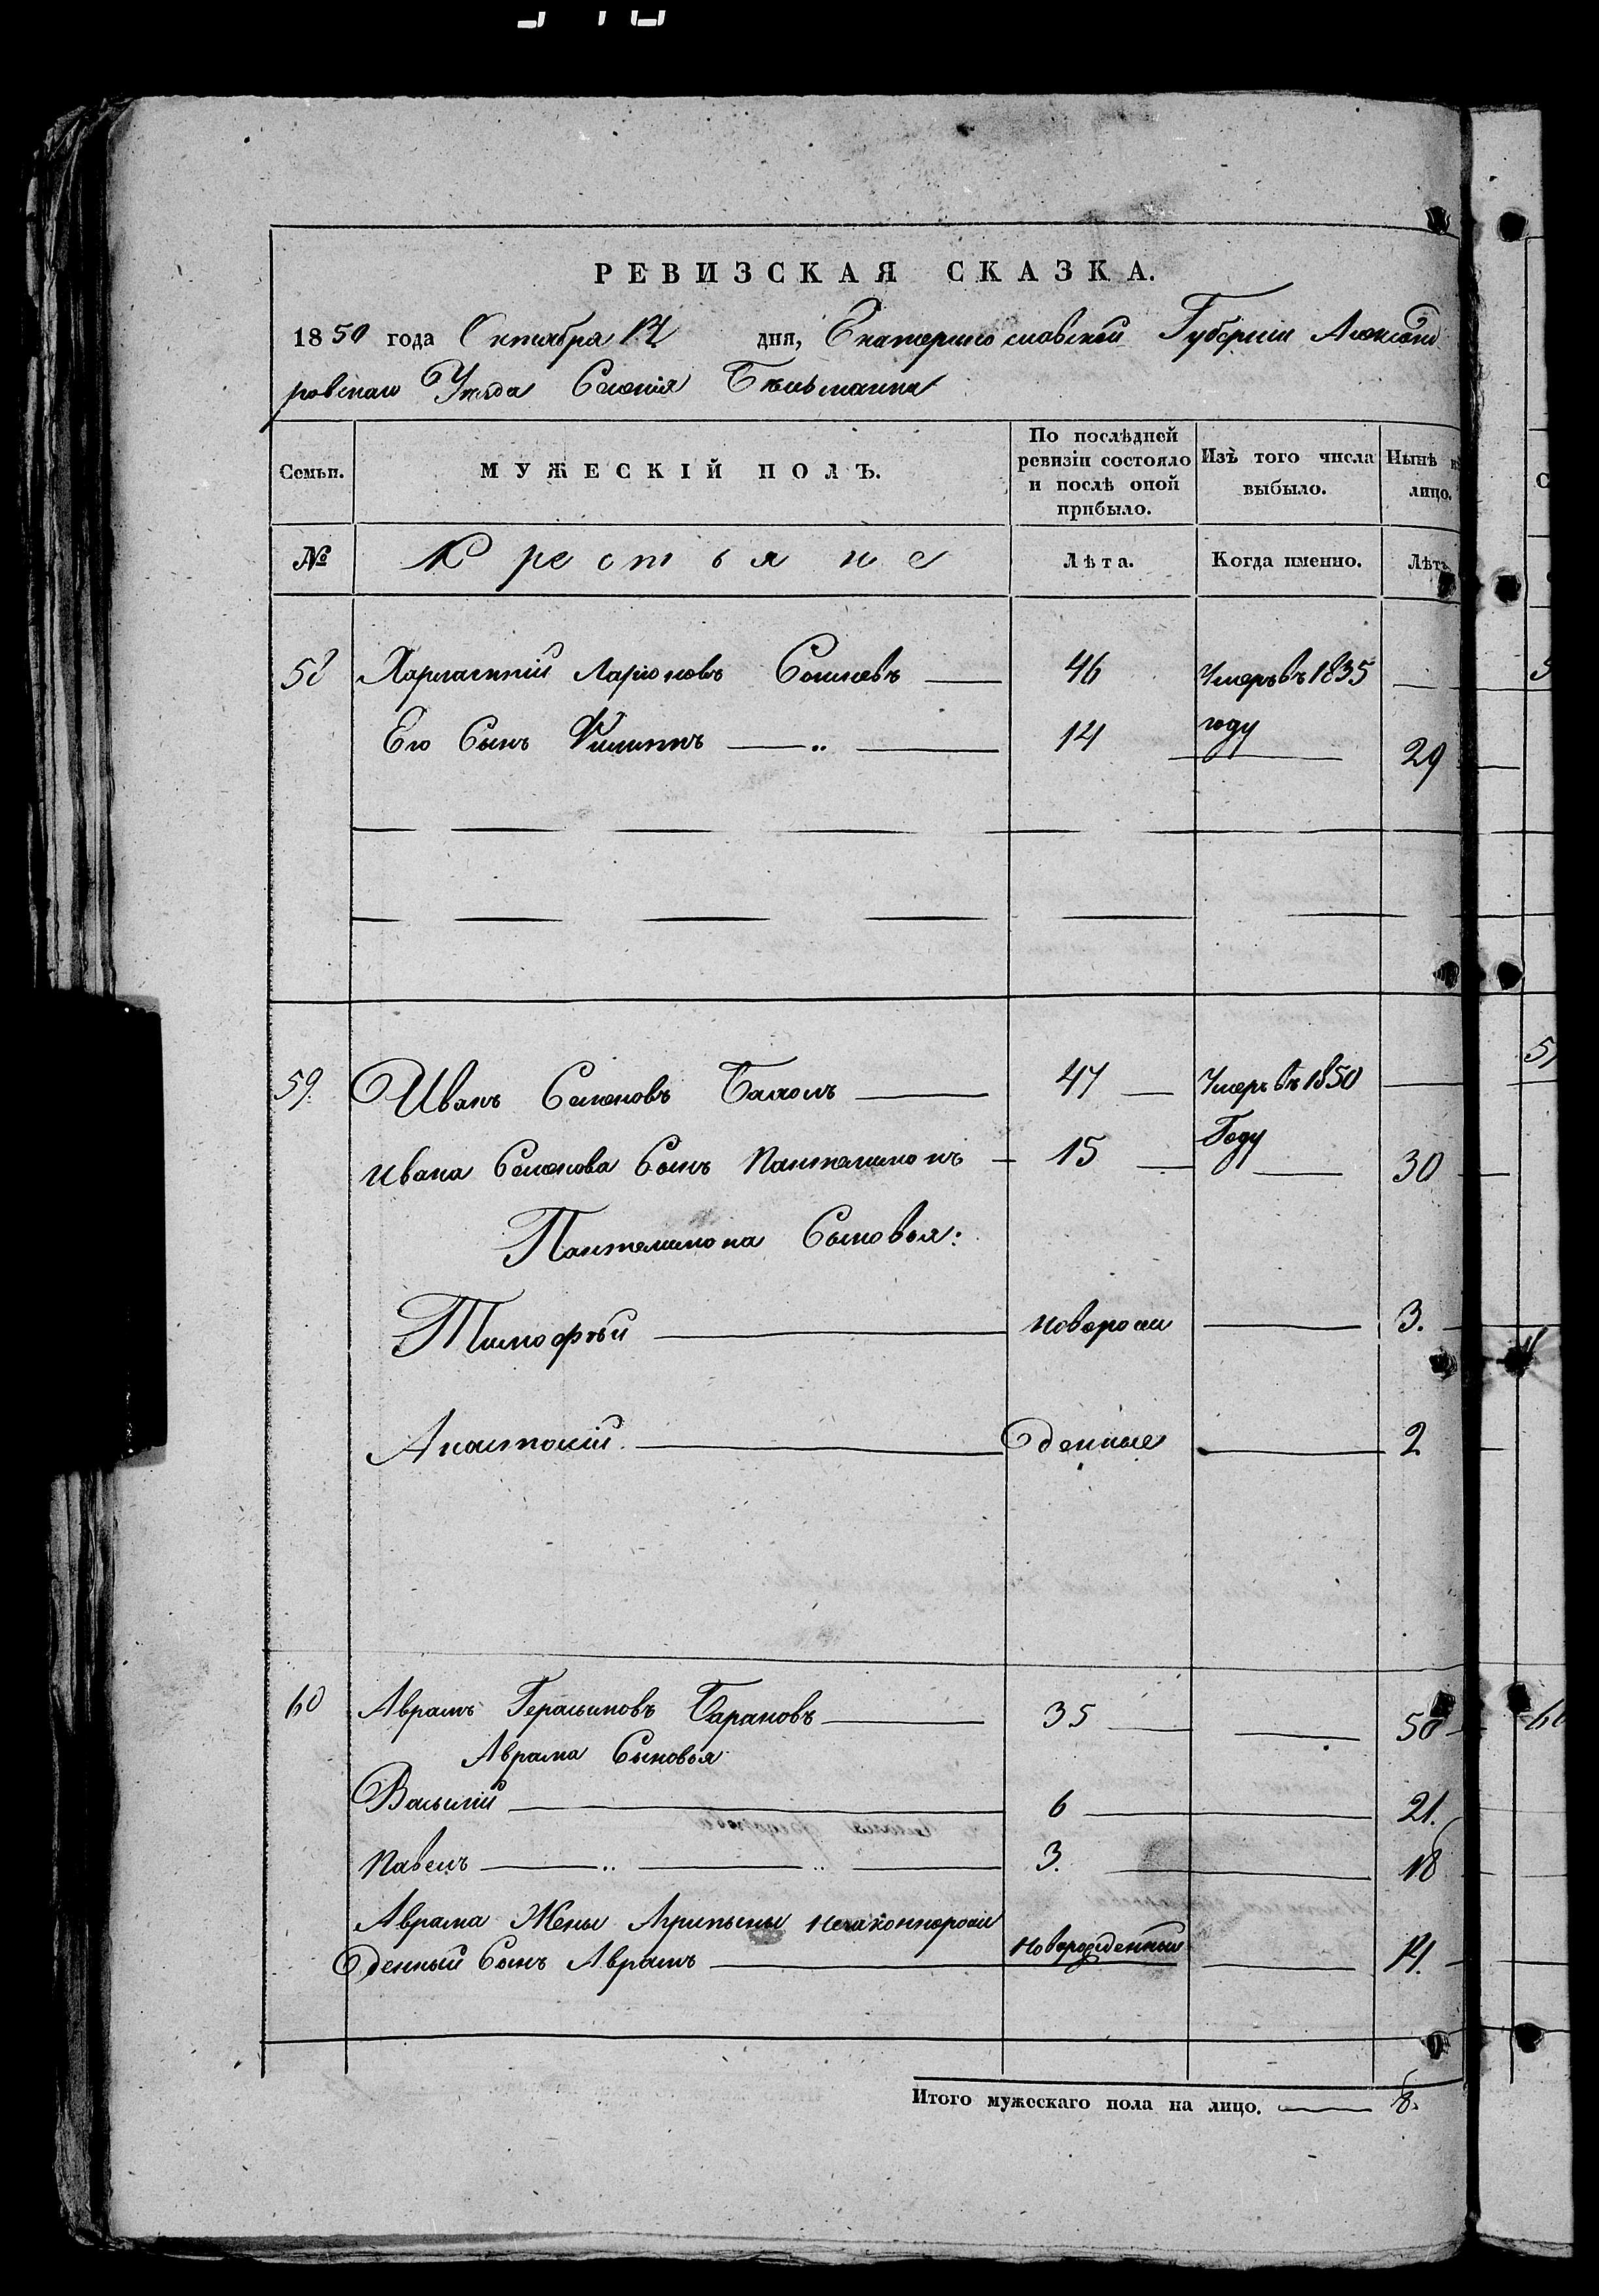 РЕВИЗСКАЯ СКАЗКА.
1850 года Октября дня, Екатеринославской Губерніи Александ
ровскаго Уѣзда Селенія
Семьи.
МУЖЕСКІЙ ПОЛЪ.
По послѣдней ревизіи состояло и послѣ оной прибыло.
Изъ того числа выбыло.
Нынѣ на лицо.
№ Крестьяне Лѣта. Когда именно. Лѣта
58 Харлампій Ларіоновъ 46 Умеръ въ 1835
Его Сынъ Филиппъ 14 году 29
59. Иванъ Семеновъ 47 Умеръ въ 1850
Ивана Семенова Сынъ Пантелимонъ 15 Году 30
Пантелимона Сыновья:
Тимофѣй новорож 3.
Анастасій денные 2
60 Аврамъ Герасимовъ Барановъ 35 50
Аврама Сыновья
Василій 6 21.
Павелъ 3. 18
Аврама Жены Агрипыны незаконнорож
денный Сынъ Аврамъ Новорожденный 14.
Итого мужескаго пола на лицо. 8.